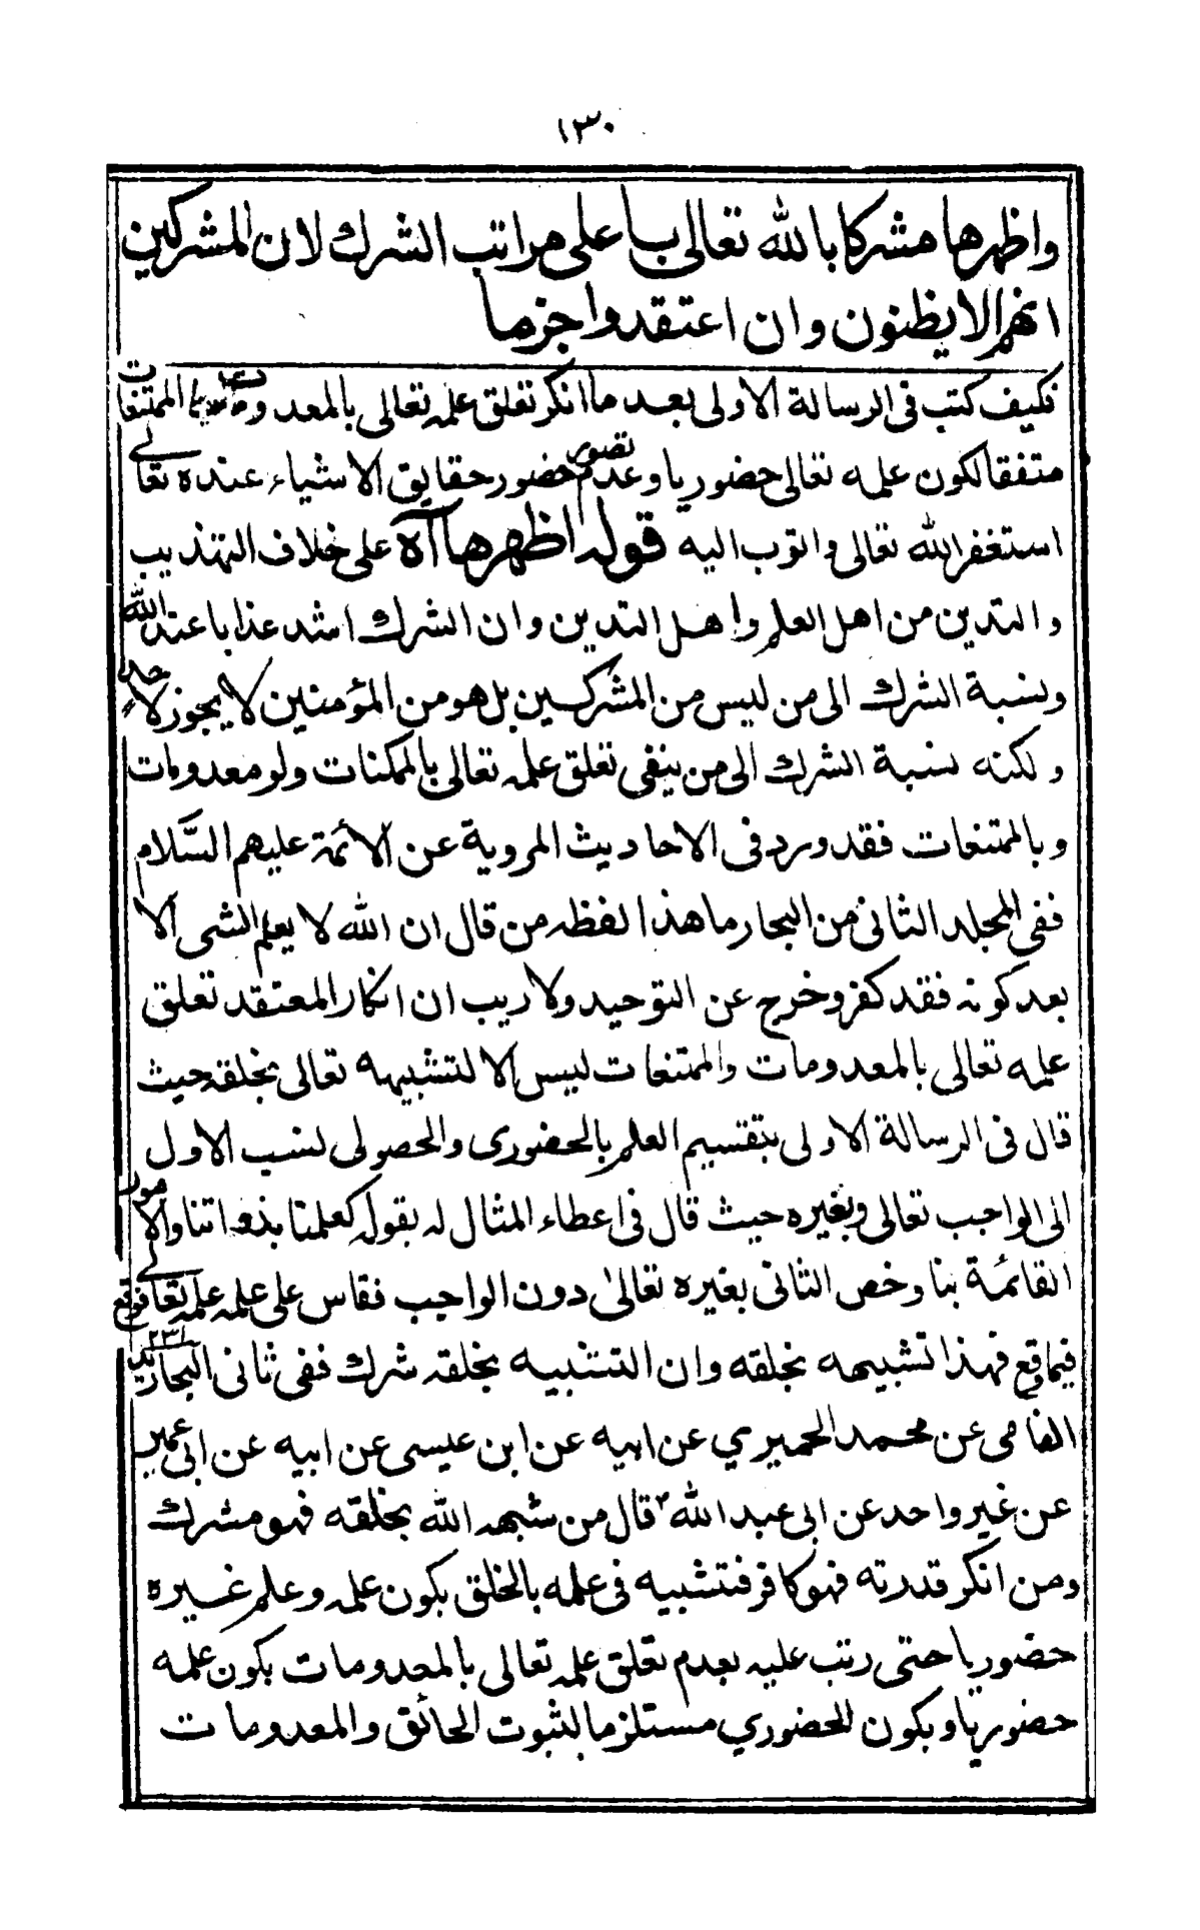 ١٣٠
واظهرها مشركا بالله تعالى باعلى مراتب الشرك لان المشركين
انهم الا يظنون وان اعتقدوا جزما
فكيف كتب فى الرسالة الاولى بعد ما انكر تعلق علمه تعالى بالمعدومات الممتنعات
متفقا لكون علمه تعالى حضوريا وعدم تصور حضور حقايق الاشياء عنده تعالى
استغفر الله تعالى واتوب اليه قوله اظهرها آه على خلاف التهذيب
والتدين من اهل العلم واهل التدين وان الشرك اشد عذابا عند الله
ونسبة الشرك الى من ليس من المشركين بل هو من المؤمنين لا يجوز لاحد
ولكنه نسبة الشرك الى من ينفى تعلق علمه تعالى بالممكنات ولو معدومات
وبالممتنعات فقد ورد فى الاحاديث المروية عن الائمة عليهم السّلام
ففى المجلد الثانى من البحار ما هذا لفظه من قال ان الله لا يعلم الشى الا
بعد كونه فقد كفر وخرج عن التوحيد ولا ريب ان انكار المعتقد تعلق
علمه تعالى بالمعدومات والممتنعات ليس الا لتشبيهه تعالى بخلقه حيث
قال فى الرسالة الاولى بتقسيم العلم بالحضورى والحصولى لنسب الاول
الى الواجب تعالى وبغيره حيث قال فى اعطاء المثال له بقوله كعلمنا بذواتنا والامور
القائمة بنا وخص الثانى بغيره تعالى دون الواجب فقاس على علمه علمه تعالى فوقع
فيما وقع فهذا تشبيهه بخلقه وان التشبيه بخلقه شرك ففى ثانى البحار ٢٣١ يد
الفامى عن محمد الحميري عن ابيه عن ابن عيسى عن ابيه عن ابى عمير
عن غير واحد عن ابى عبد الله ٢ قال من شبهه الله بخلقه فهو مشرك
ومن انكر قدرته فهو كافر فتشبيه فى علمه بالخلق بكون علمه وعلم غيره
حضوريا حتى رتب عليه بعدم تعلق علمه تعالى بالمعدومات بكون علمه
حضوريا وبكون الحضوري مستلزما لثبوت الحائق والمعدومات